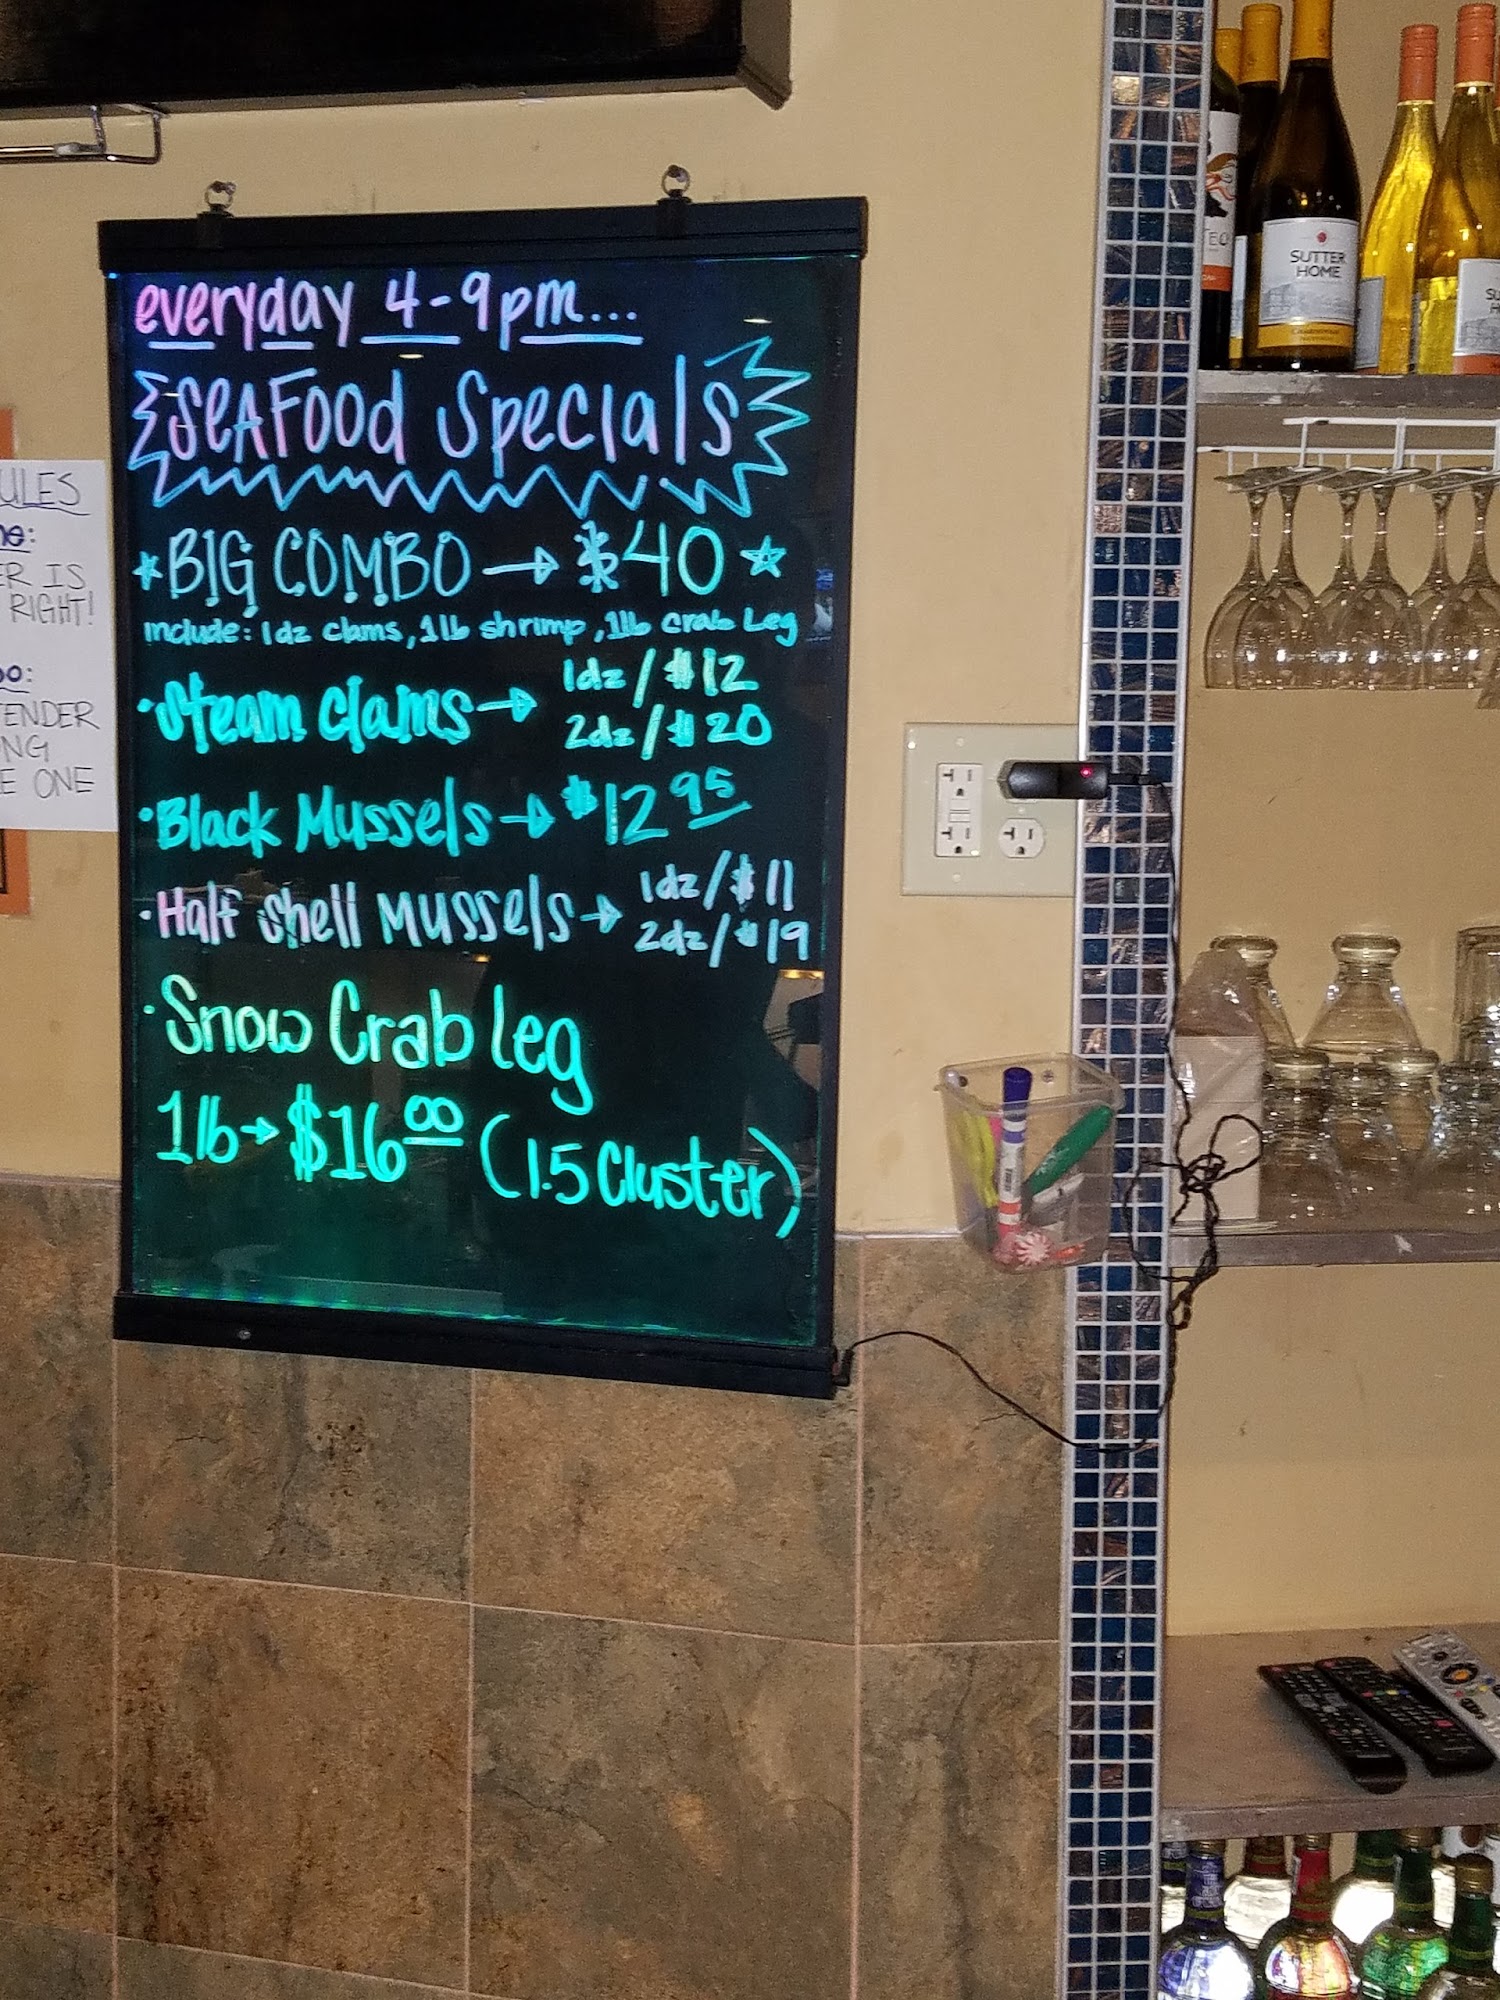 everyday 4-9pm...
SeAFood Specials
BIG COMBO → $40
include: 1dz clams, 1lb shrimp, 1lb crab Leg
• Steam clams → 1dz/$12
2dz/$20
• Black Mussels → $12 95
• Half shell Mussels → 1dz/$11
2dz/$19
• Snow Crab leg
1lb → $16 00 (1.5 Cluster)
ULES
ER IS
RIGHT!
TENDER
NG
E ONE
SUTTER
HOME